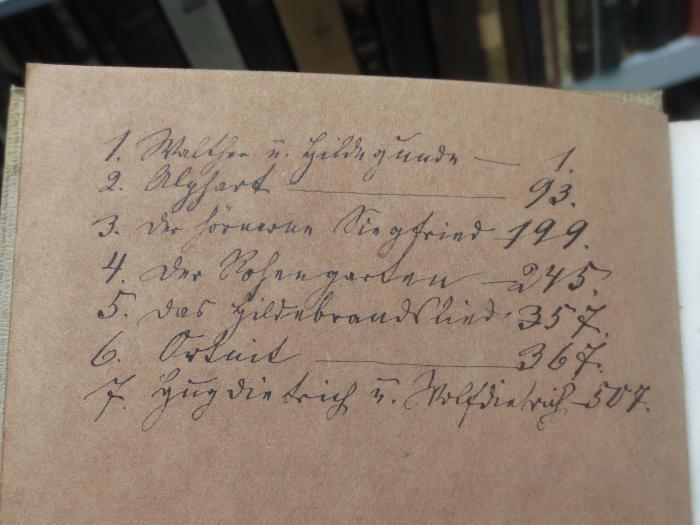 1. Walther u. Hildegunde — 1.
2. Alphart — 93.
3. Der hörnerne Siegfried — 199.
4. Der Rosengarten — 245.
5. Das Hildebrandslied 357.
6. Ortnit — 367.
7. Hugdietrich u. Wolfdietrich — 507.